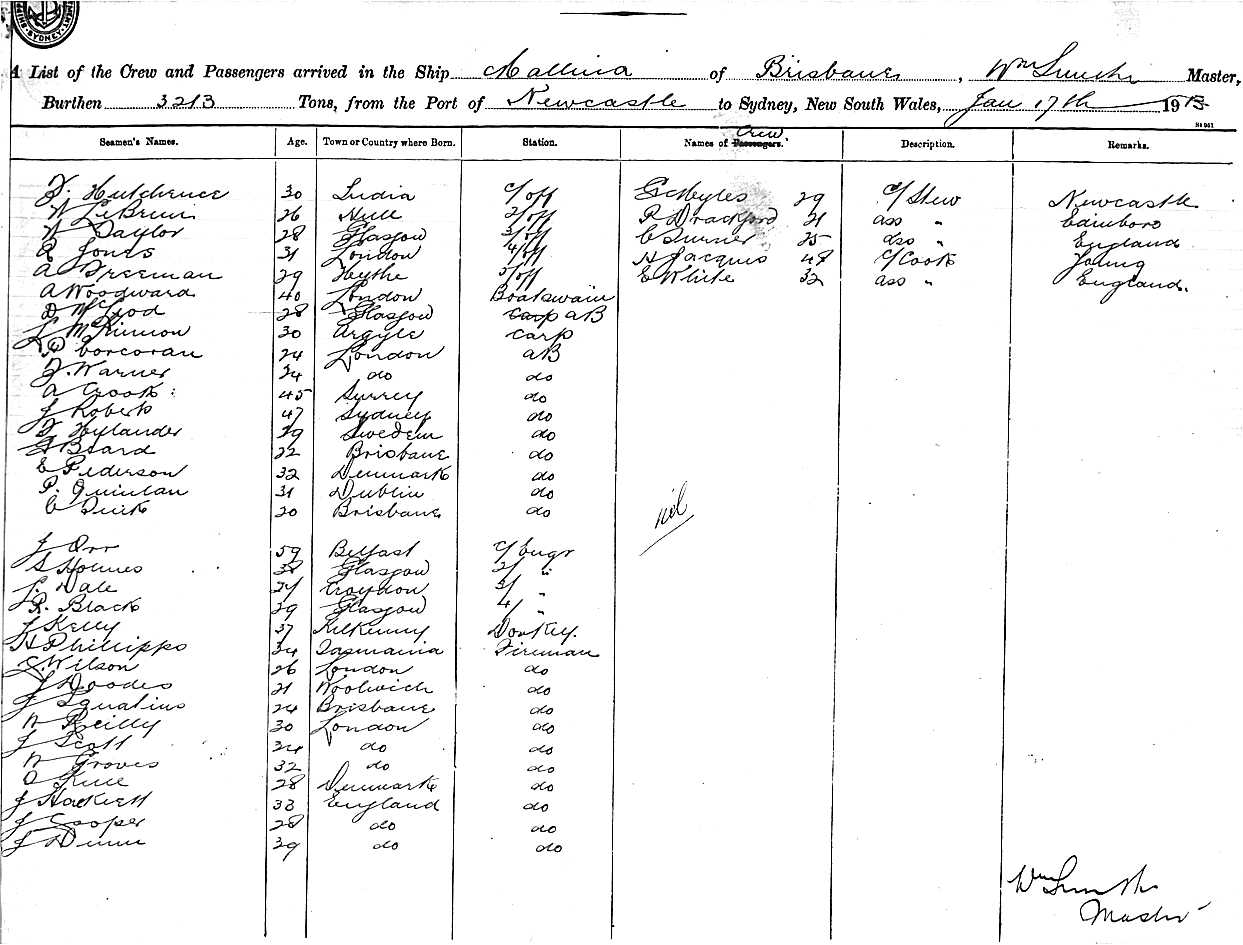 SYDNEY
A List of the Crew and Passengers arrived in the Ship Mallina of Brisbane, Wm Smith Master,
Burthen 3213 Tons, from the Port of Newcastle to Sydney, New South Wales, Jan 17th 1913
St 961
Seamen's Names. Age. Town or Country where Born. Station. Names of Passengers. Crew. Description. Remarks.
F. Hutchence 30 India C/off G Meyles 29 C/Stew Newcastle
W LeBrun 26 Hull 2/off R Drackford 21 ass " Edinboro
W Taylor 28 Glasgow 3/off C Turner 25 ass " England
R Jones 31 London 4/off H Jacques 48 C/Cook Young
A Freeman 29 Hythe 5/off E White 32 ass " England.
A Woodward 40 London Boatswain
D McLeod 28 Glasgow carp AB
L McKinnon 30 Argyle carp
P Corcoran 24 London AB
F. Warner 24 do do
A Crook 45 Surrey do
J Roberts 47 Sydney do
F Hylander 29 Sweden do
G Beard 22 Brisbane do
E Pederson 32 Denmark do
P. Quinlan 31 Dublin do
C Quick 20 Brisbane do
nil
J Orr 59 Belfast C/engr
S Holmes 38 Glasgow 2/ "
L. Dale 27 Croydon 3/ "
R. Black 29 Glasgow 4/ "
J Kelly 37 Kilkenny Donkey.
H Phillipps 34 Tasmania Fireman
J. Wilson 26 London do
J Hoodes 21 Woolwich do
J Ignatius 24 Brisbane do
W Reilly 30 London do
J Scott 34 do do
W Groves 32 do do
O 28 Denmark do
J Hackett 33 England do
J Cooper 28 do do
J Dunn 39 do do
Wm Smith
Master